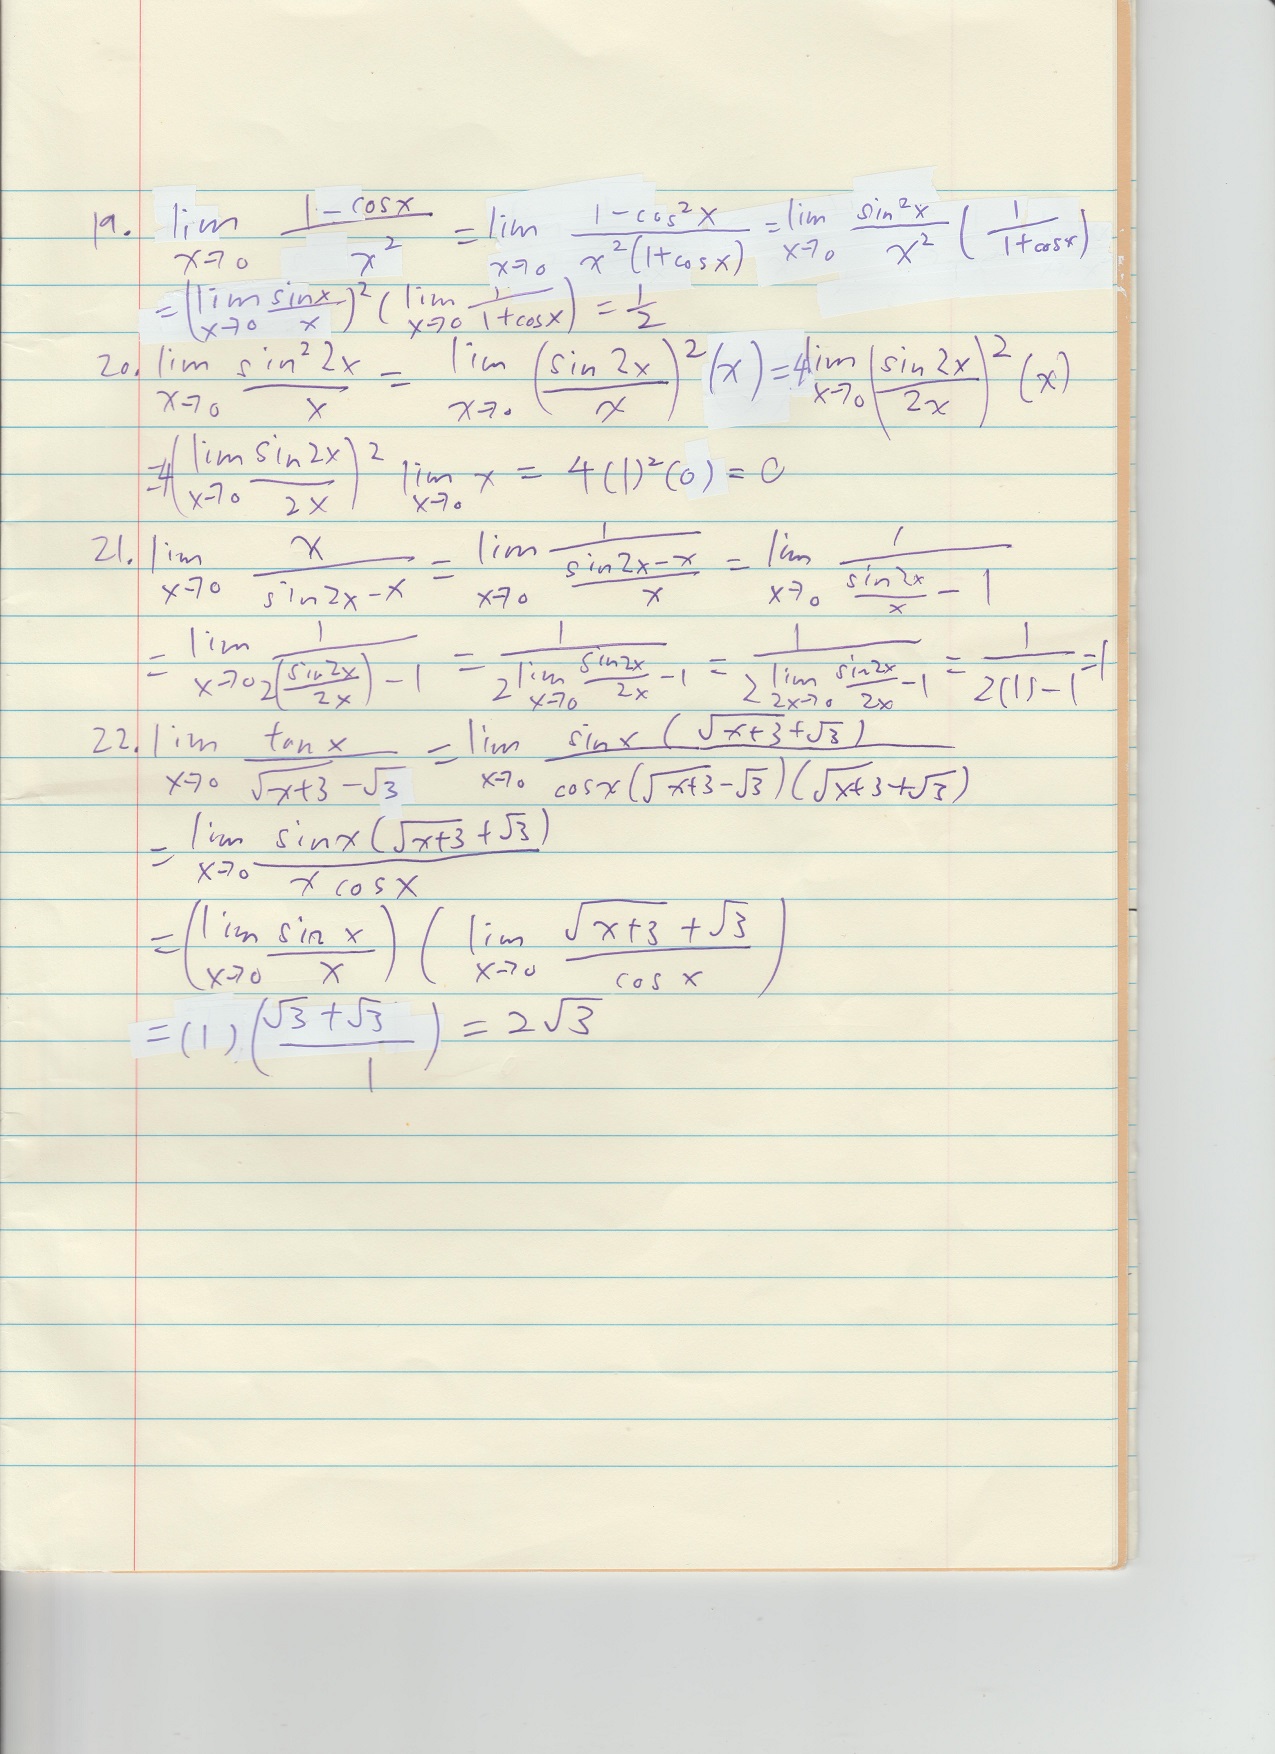 19. lim x→0 (1-cosx)/x² = lim x→0 (1-cos²x)/(x²(1+cosx)) = lim x→0 sin²x/x² (1/(1+cosx))
= (lim x→0 sinx/x)² (lim x→0 1/(1+cosx)) = 1/2
20. lim x→0 sin²2x/x = lim x→0 (sin2x/x)² (x) = 4 lim x→0 (sin2x/2x)² (x)
= 4(lim x→0 sin2x/2x)² lim x→0 x = 4(1)²(0) = 0
21. lim x→0 x/(sin2x-x) = lim x→0 1/((sin2x-x)/x) = lim x→0 1/(sin2x/x - 1)
= lim x→0 1/(2(sin2x/2x) - 1) = 1/(2 lim x→0 sin2x/2x - 1) = 1/(2 lim 2x→0 sin2x/2x - 1) = 1/(2(1)-1) = 1
22. lim x→0 tanx/(√(x+3) - √3) = lim x→0 sinx(√(x+3)+√3)/(cosx(√(x+3)-√3)(√(x+3)+√3))
= lim x→0 sinx(√(x+3)+√3)/(x cosx)
= (lim x→0 sinx/x) (lim x→0 (√(x+3)+√3)/cosx)
= (1)·((√3+√3)/1) = 2√3